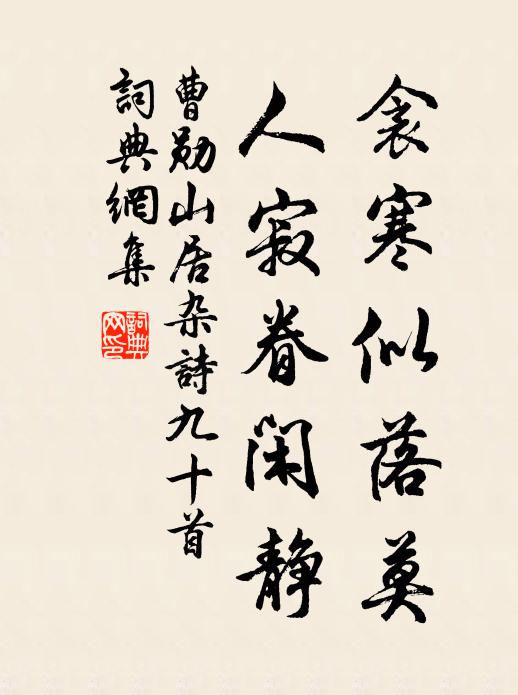 衾寒似落莫
人寂眷闲静
曹勛山居杂詩九十首
詞典網集
詞典
网印